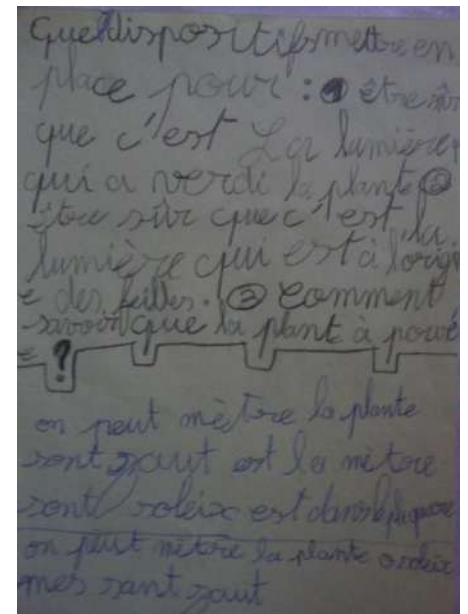 Quel dispositifs mettre en
place pour : ① être sûr
que c'est La lumière
qui a verdi la plante ②
être sûr que c'est la
lumière qui est à l'orign
e des feilles. ③ Comment
savoir que la plant à pousé
?
on peut mètre la plante
sont zaut est la mètre
sont soleix est dans le
on peut mètre la plante o soleix
mes sant zaut